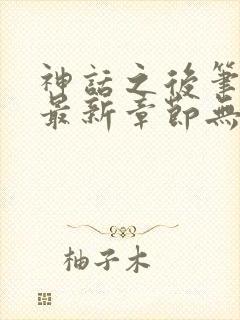 神話之後筆
最新章節無
柚子木